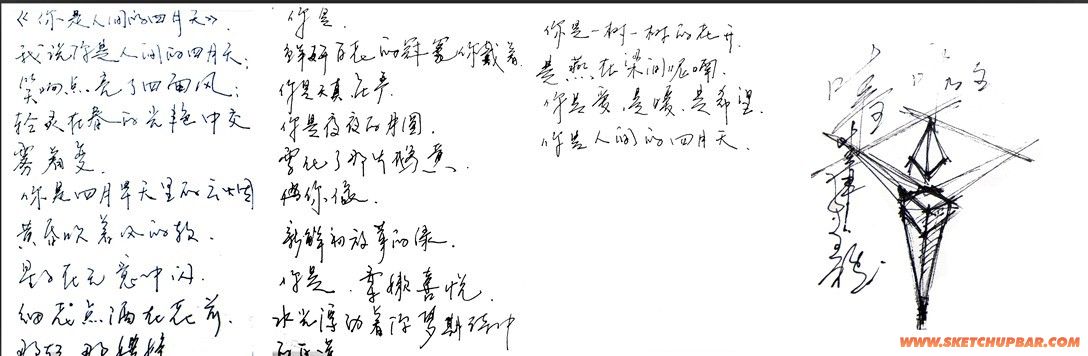 《你是人间的四月天》
我说你是人间的四月天；
笑响点亮了四面风；
轻灵在春的光艳中交
舞着变。
你是四月早天里的云烟
黄昏吹着风的软.
星子在无意中闪.
细雨点洒在花前.
那轻 那娉婷
你是.
鲜妍百花的冠冕你戴着.
你是天真庄严.
你是夜夜的月圆.
雪化了那片鹅黄.
你像.
新鲜初放芽的绿.
你是.柔嫩喜悦.
水光浮动着你梦期待中
你是一树一树的花开
是燕在梁间呢喃.
你是爱.是暖.是希望.
你是人间的四月天.
WWW.SKETCHUPBAR.COM